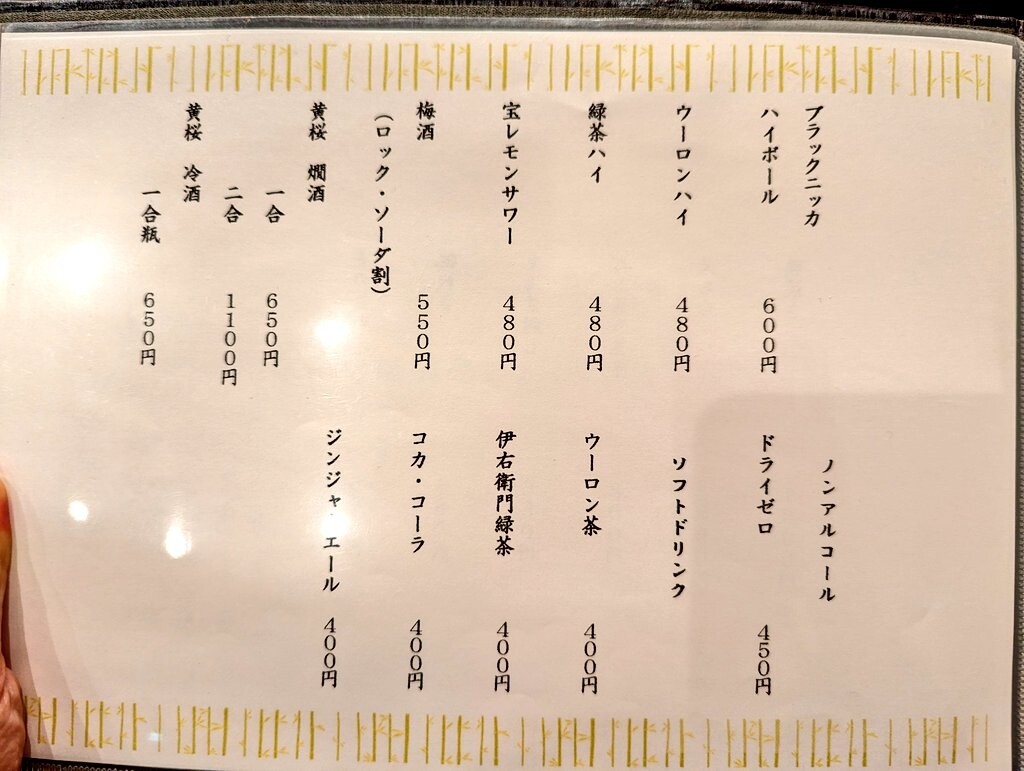 ブラックニッカ
ハイボール 600円
ウーロンハイ 480円
緑茶ハイ 480円
宝レモンサワー 480円
梅酒 550円
(ロック・ソーダ割)
黄桜 燗酒
一合 650円
二合 1100円
黄桜 冷酒
一合瓶 650円
ノンアルコール
ドライゼロ 450円
ソフトドリンク
ウーロン茶 400円
伊右衛門緑茶 400円
コカ・コーラ 400円
ジンジャ・エール 400円